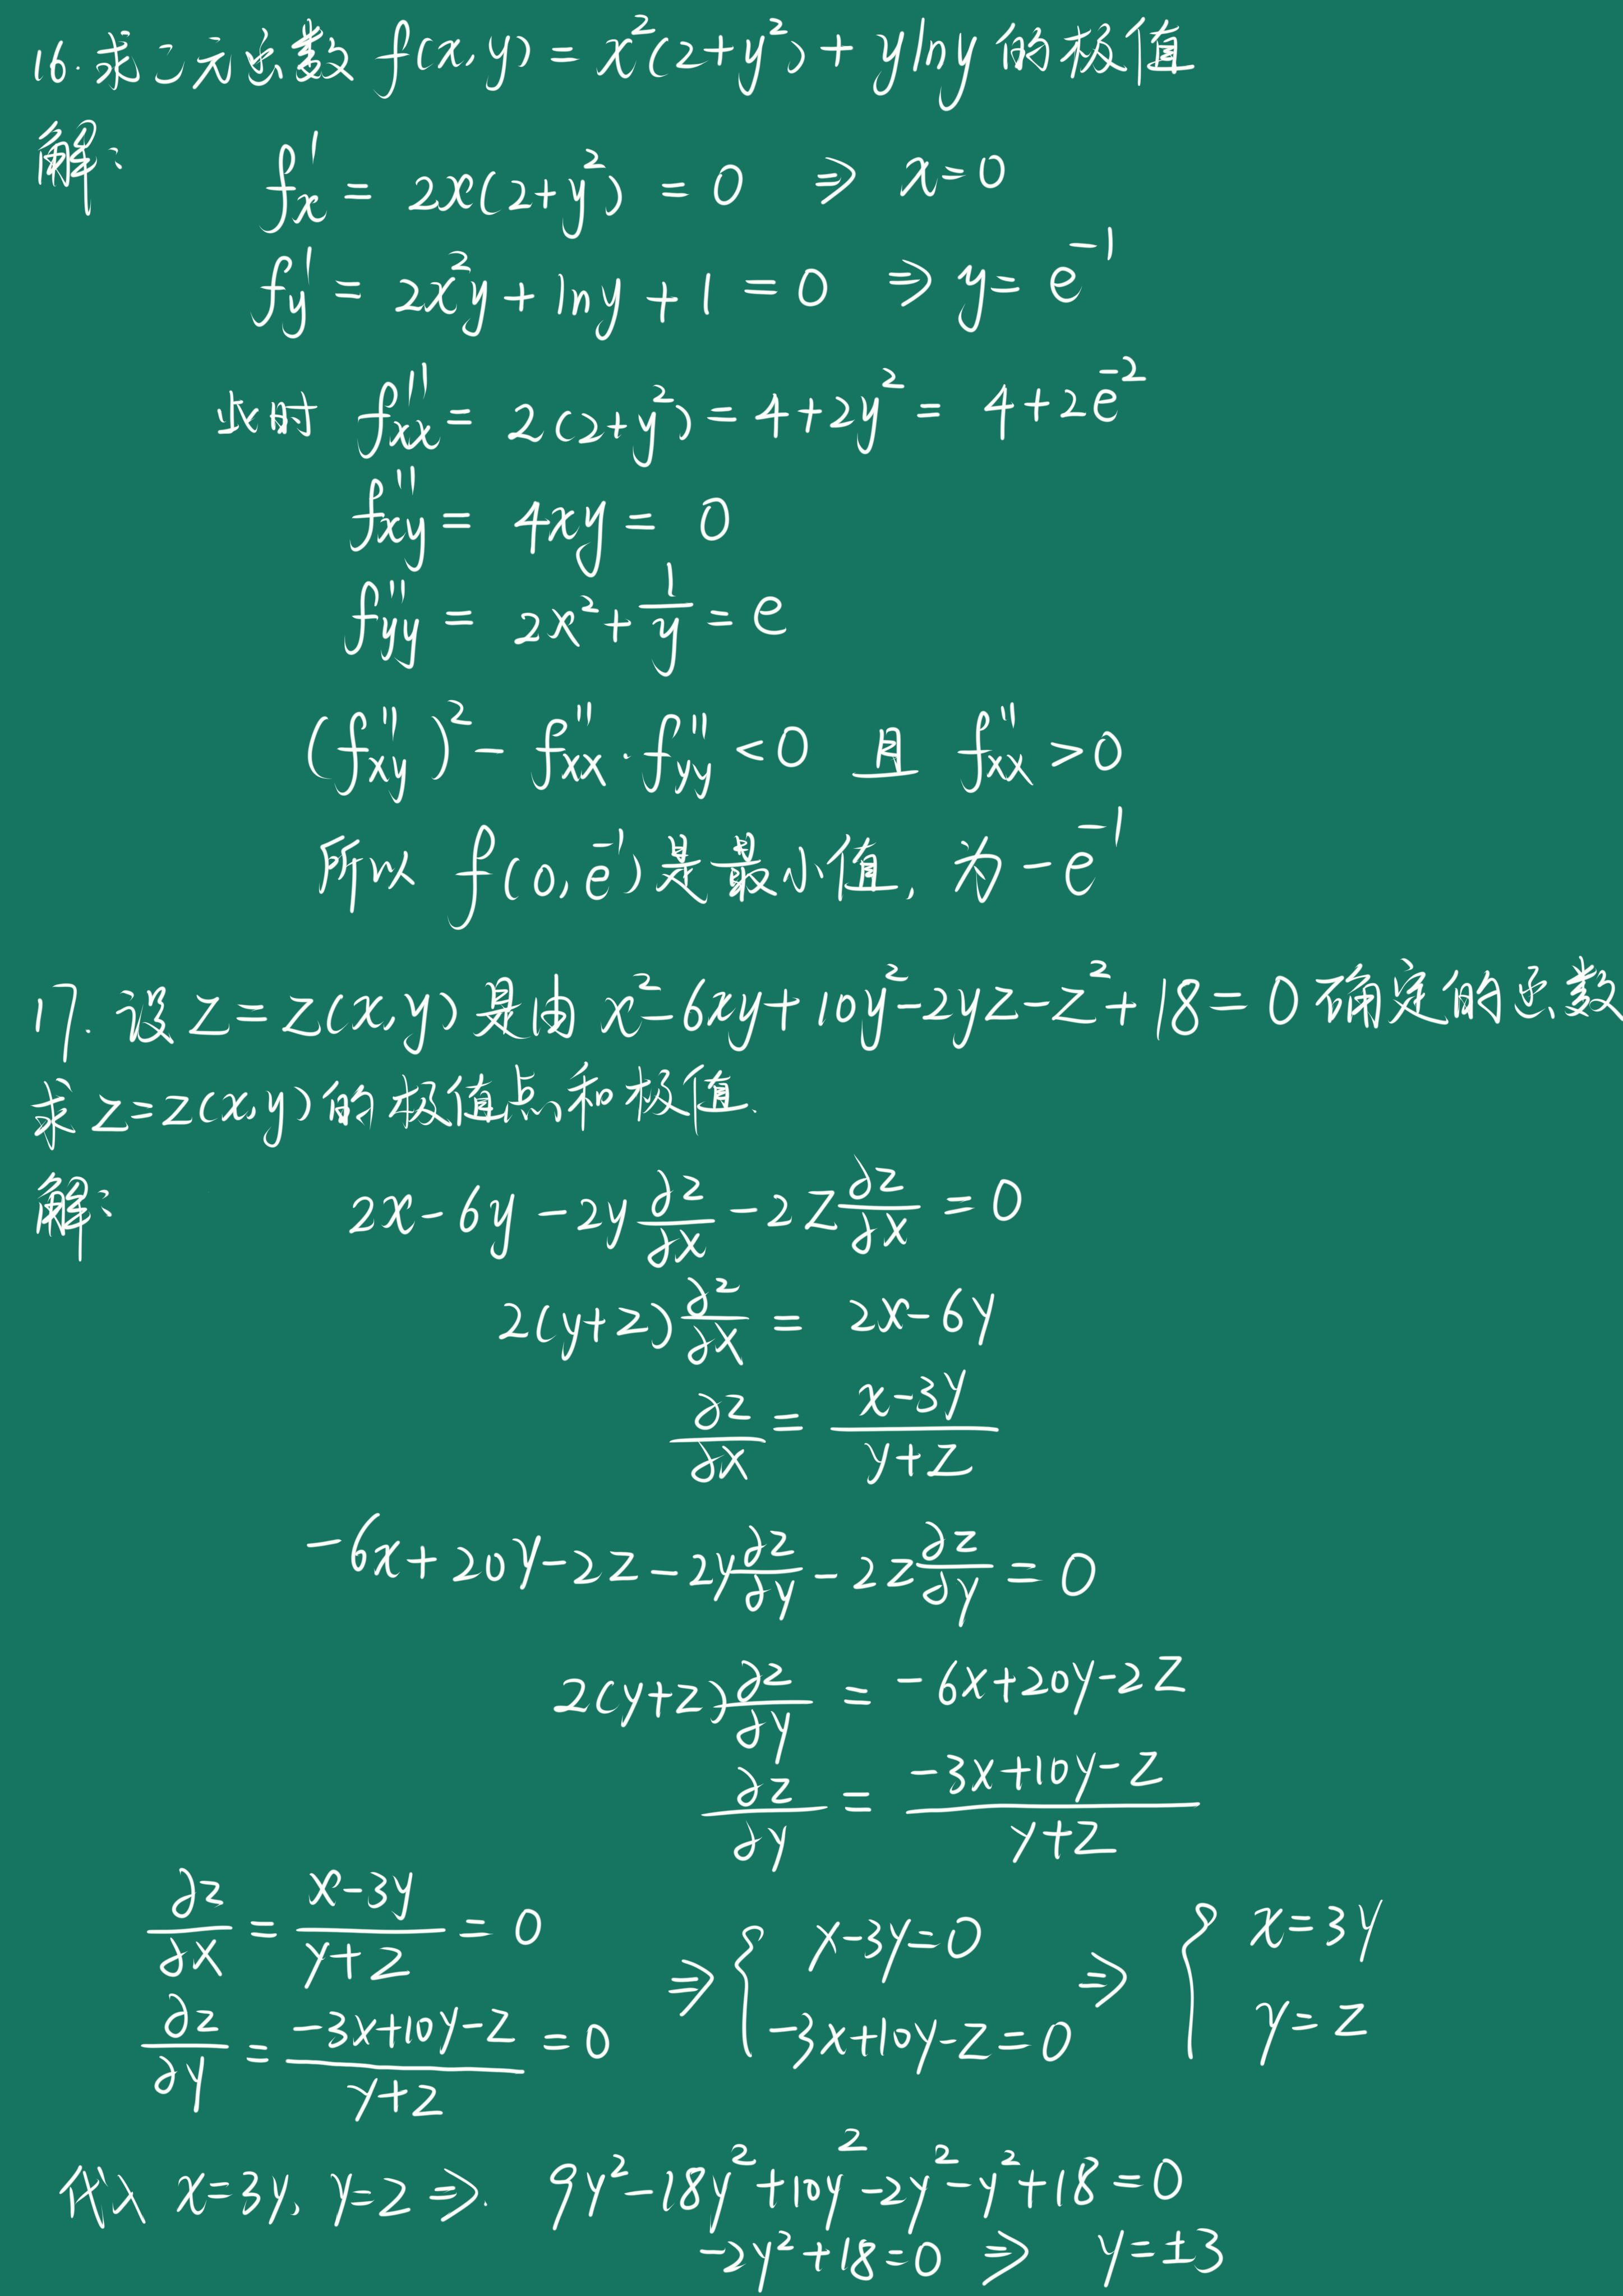 16.求二元函数 f(x,y) = x²(2+y²) + ylny 的极值
解:
f'x = 2x(2+y²) = 0 ⇒ x=0
f'y = 2x²y + lny + 1 = 0 ⇒ y = e⁻¹
此时 f''xx = 2(2+y²) = 4+2y² = 4+2e⁻²
f''xy = 4xy = 0
f''yy = 2x² + 1/y = e
(f''xy)² - f''xx · f''yy < 0 且 f''xx > 0
所以 f(0, e⁻¹) 是最小值, 为 -e⁻¹
17. 设 z = z(x,y) 是由 x²-6xy+10y²-2yz-z²+18=0 确定的函数
求 z=z(x,y) 的极值点和极值.
解:
2x-6y-2y ∂z/∂x - 2z ∂z/∂x = 0
2(y+z) ∂z/∂x = 2x-6y
∂z/∂x = (x-3y)/(y+z)
-6x+20y-2z-2y ∂z/∂y - 2z ∂z/∂y = 0
2(y+z) ∂z/∂y = -6x+20y-2z
∂z/∂y = (-3x+10y-z)/(y+z)
∂z/∂x = (x-3y)/(y+z) = 0 ⇒ { x-3y=0 ⇒ { x=3y
∂z/∂y = (-3x+10y-z)/(y+z) = 0 -3x+10y-z=0 y=z
代入 x=3y, y=z ⇒. 9y²-18y²+10y²-2y²-y²+18=0
-2y²+18=0 ⇒ y=±3